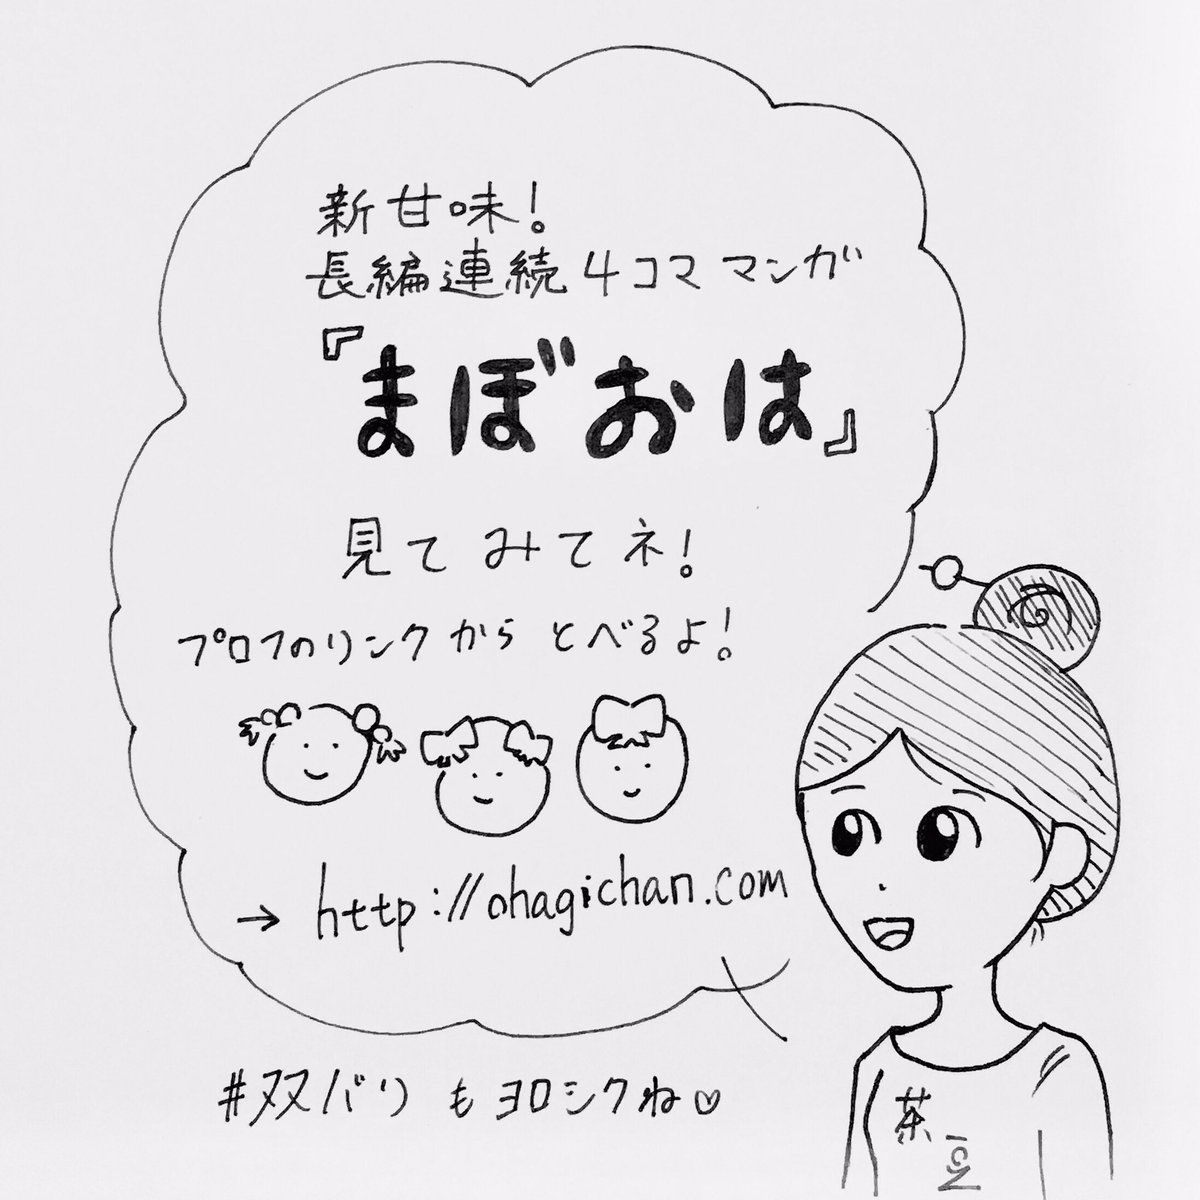 新甘味!
長編連続4コママンガ
『まぼおは』
見てみてネ!
プロフのリンクからとべるよ!
→ http://ohagichan.com
#双バリもヨロシクね♡
茶